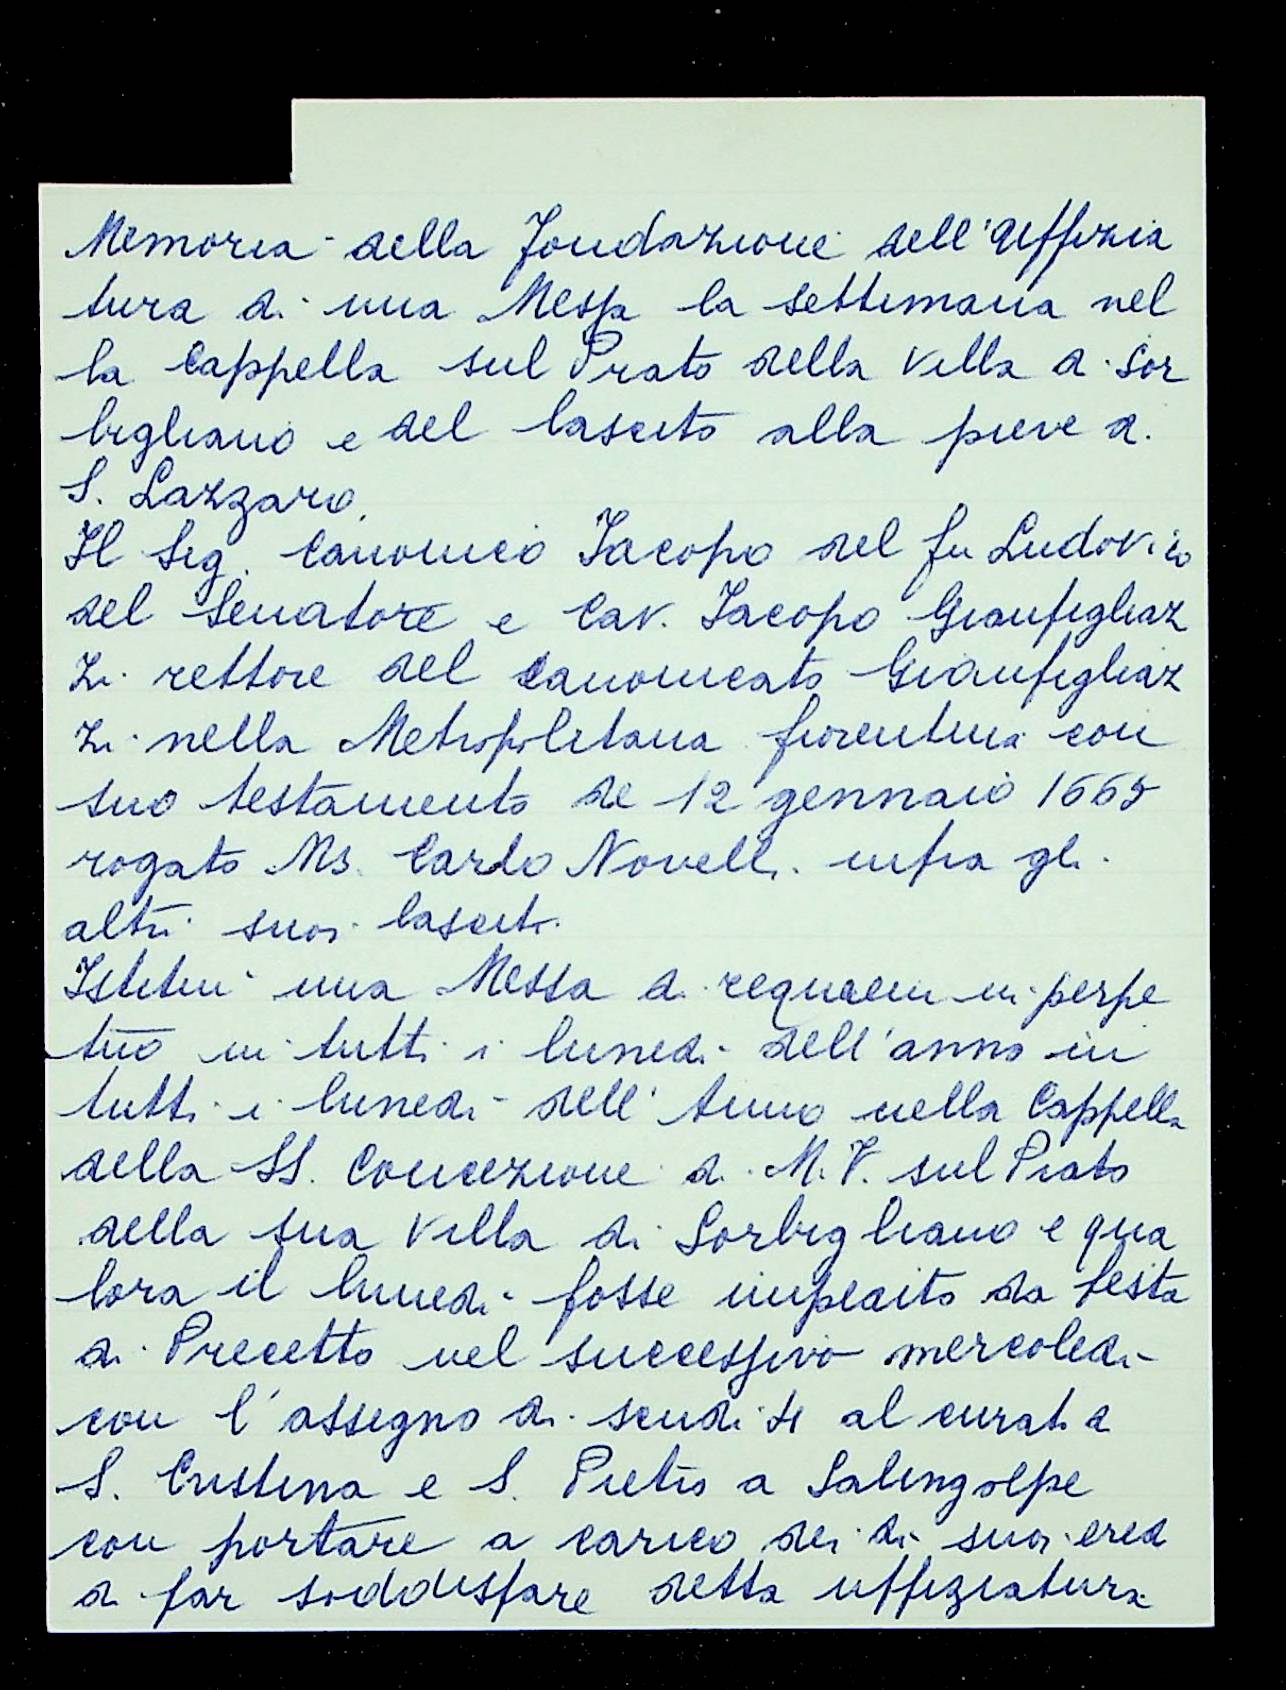 Memoria della Fondazione dell'Uffizia
tura di una Messa la settimana nel
la Cappella sul Prato della Villa di Sor
bigliano e del lascito alla pieve di
S. Lazzaro.
Il Sig. Canonico Jacopo del fu Ludovico
del Senatore e Cav. Jacopo Gianfigliaz
zi rettore del canonicato Gianfigliaz
zi nella Metropolitana fiorentina con
suo testamento de 12 gennaio 1665
rogato Ms. Carlo Novelli infra gli
altri suoi lasciti
Istituì una Messa di requiem in perpe
tuo in tutti i lunedì dell'anno in
tutti i lunedì dell'Anno nella Cappella
della SS. Concezione di M. V. sul Prato
della sua Villa di Sorbigliano e qua
lora il lunedì fosse impedito da festa
di Precetto nel successivo mercoledì
con l'assegno di scudi al curato di
S. Cristina e S. Pietro a Salingolpe
con portare a carico dei di suoi ered
di far soddisfare detta uffiziatura